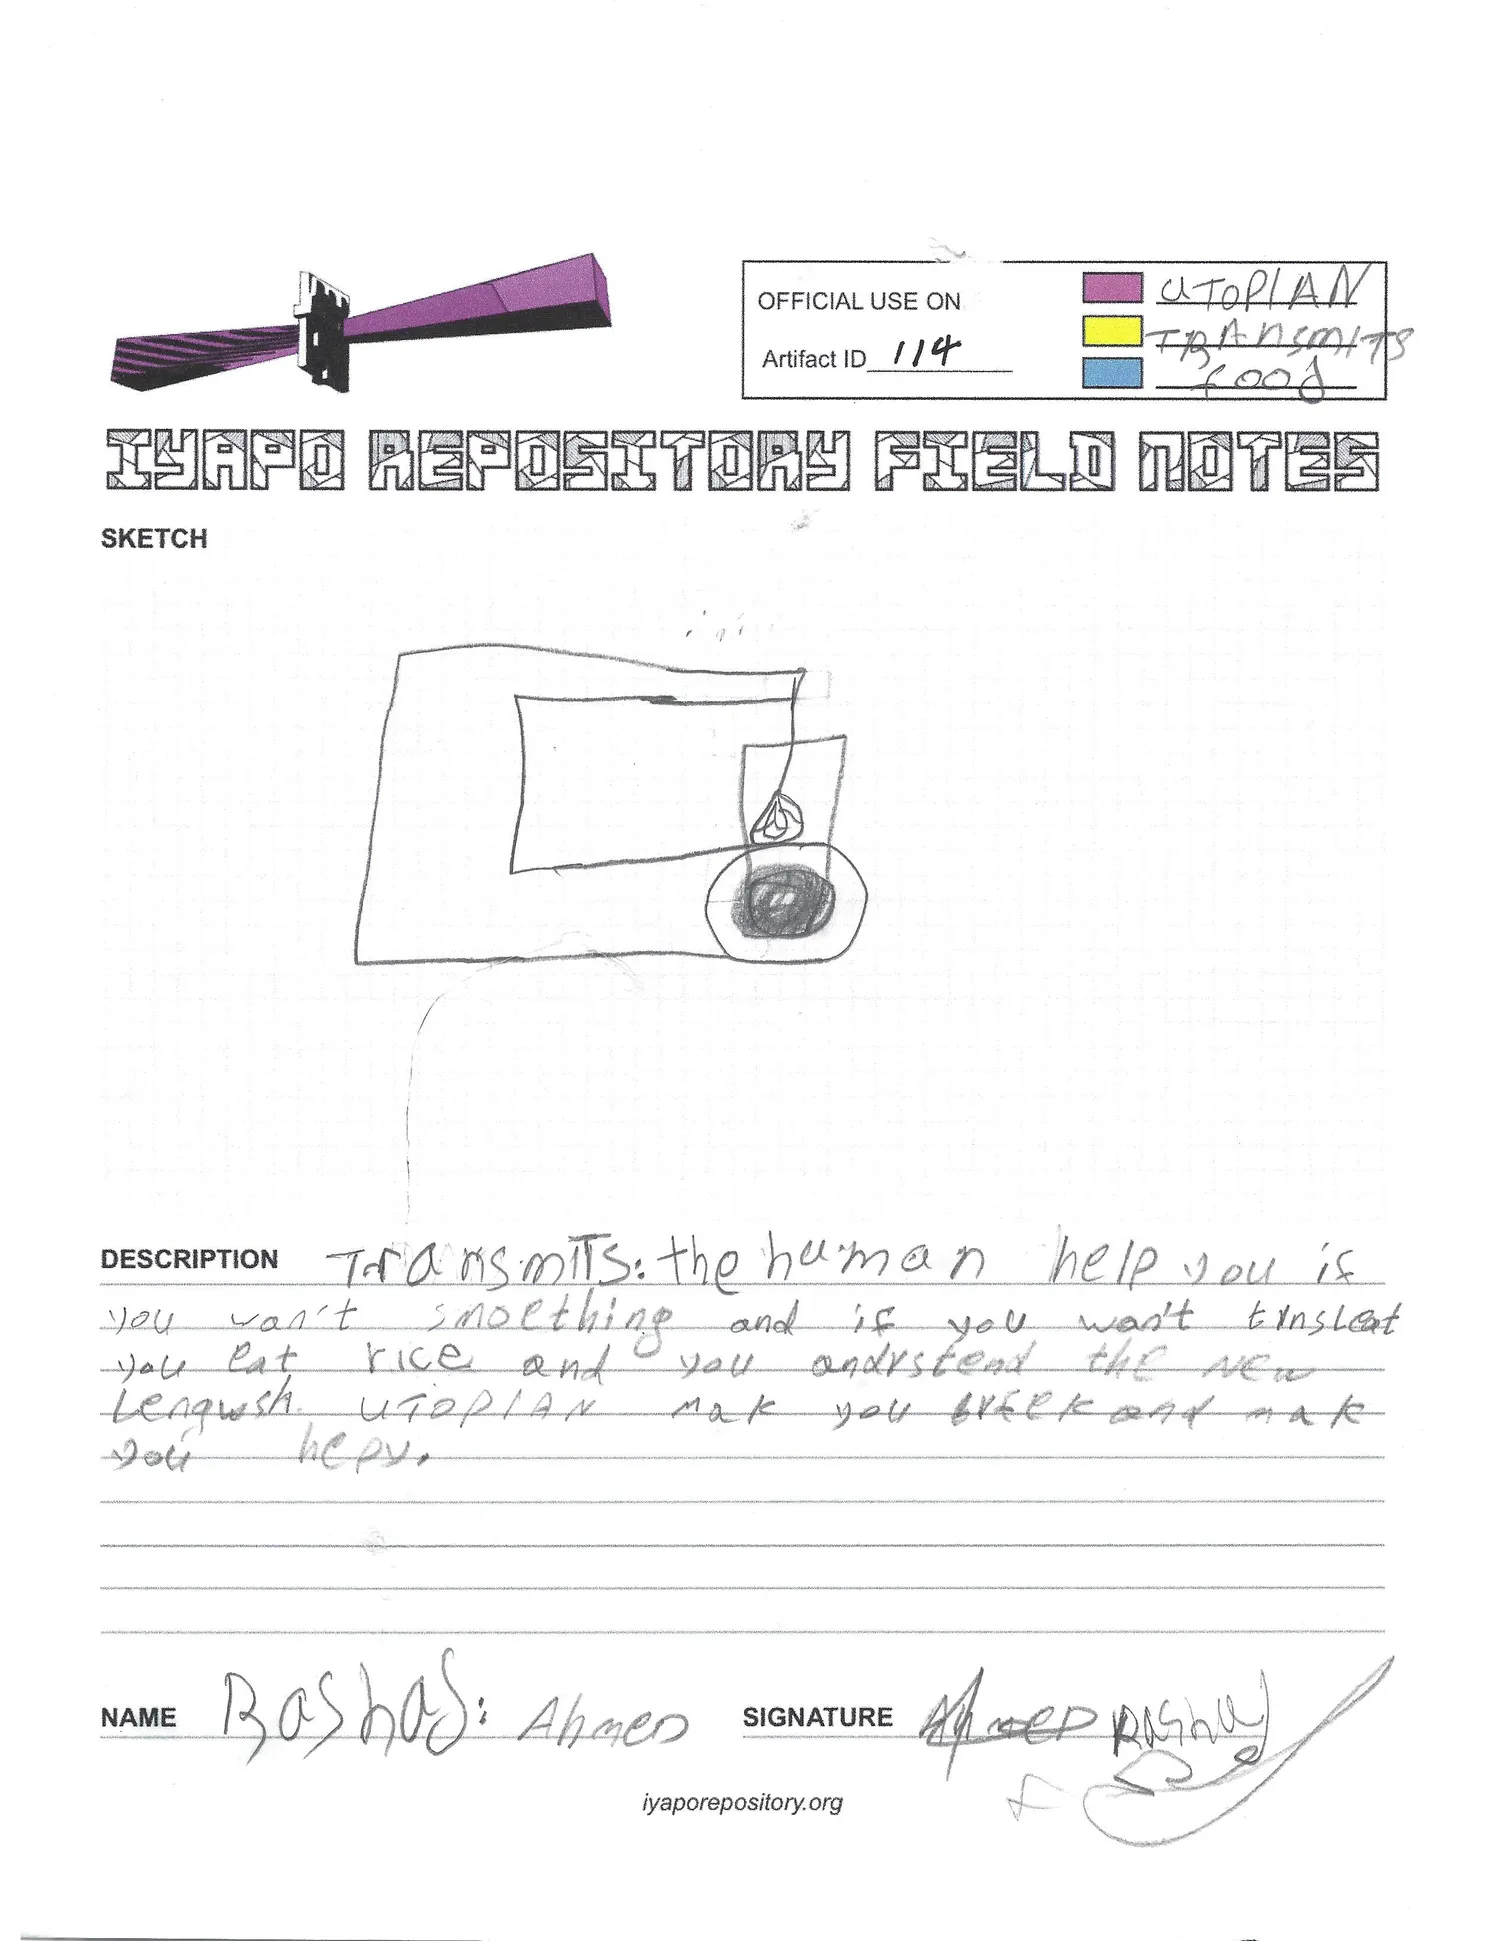 OFFICIAL USE ON
Artifact ID 114
UTOPIAN
TRANSMITS
food
IYAPO REPOSITORY FIELD NOTES
SKETCH
DESCRIPTION TransmiTs: the human help you if
you wan't smoething and if you wan't trnsleat
you eat rice and you andrstend the New
Lengwsh. UTOPIAN mak you breek and mak
you hepy.
NAME Rashad: Ahmed
SIGNATURE Ahmed Rashad
iyaporepository.org